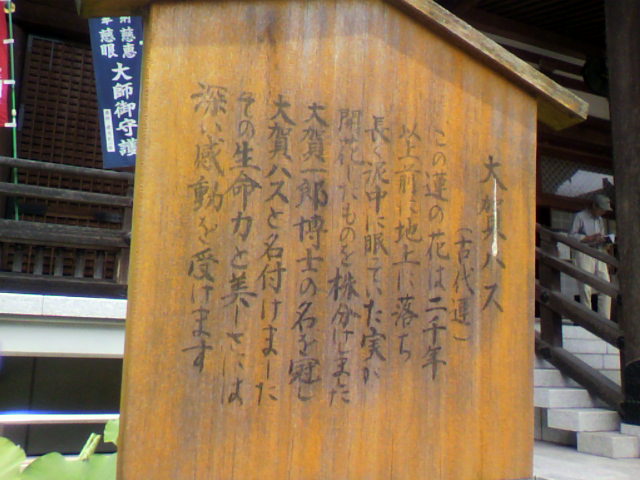 大賀ハス
(古代蓮)
この蓮の花は二千年
以上前に地上に落ち
長く泥中に眠っていた実が
開花したものを株分けしました
大賀一郎博士の名を冠し
大賀ハスと名付けました
その生命力と美しさには
深い感動を受けます
大師御守護
慈恵
慈眼